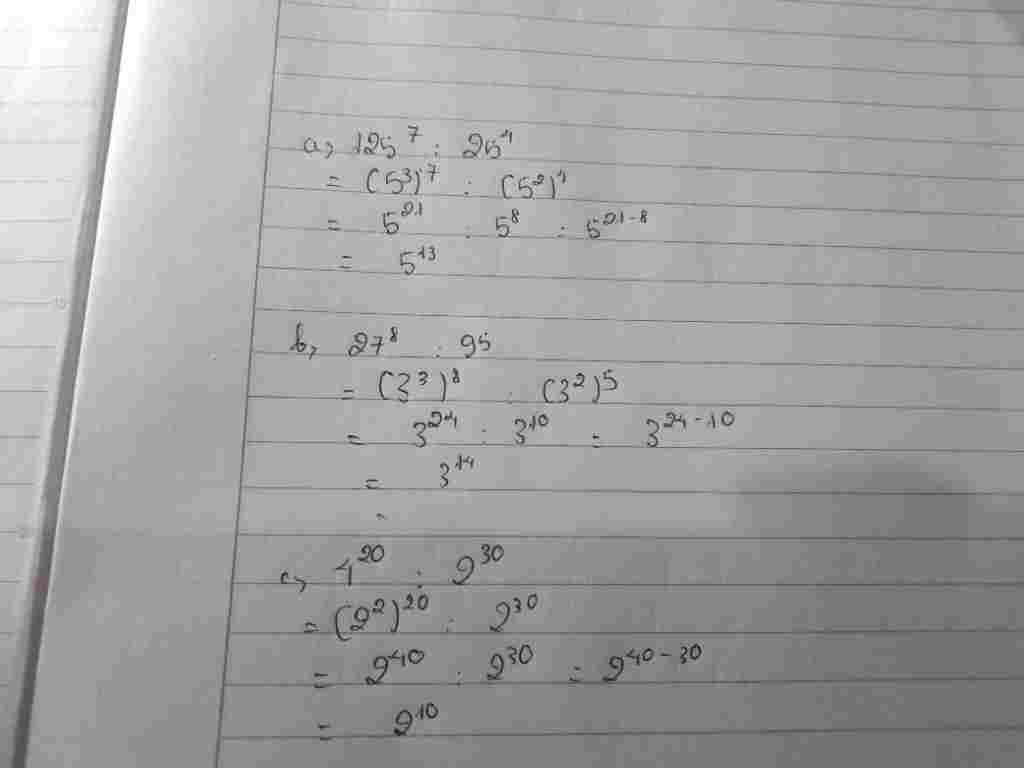 a, 125⁷ : 25⁴
= (5³)⁷ : (5²)⁴
= 5²¹ : 5⁸ : 5²¹⁻⁸
= 5¹³
b, 27⁸ : 9⁵
= (3³)⁸ : (3²)⁵
= 3²⁴ : 3¹⁰ = 3²⁴⁻¹⁰
= 3¹⁴
c, 4²⁰ : 2³⁰
= (2²)²⁰ : 2³⁰
= 2⁴⁰ : 2³⁰ = 2⁴⁰⁻³⁰
= 2¹⁰